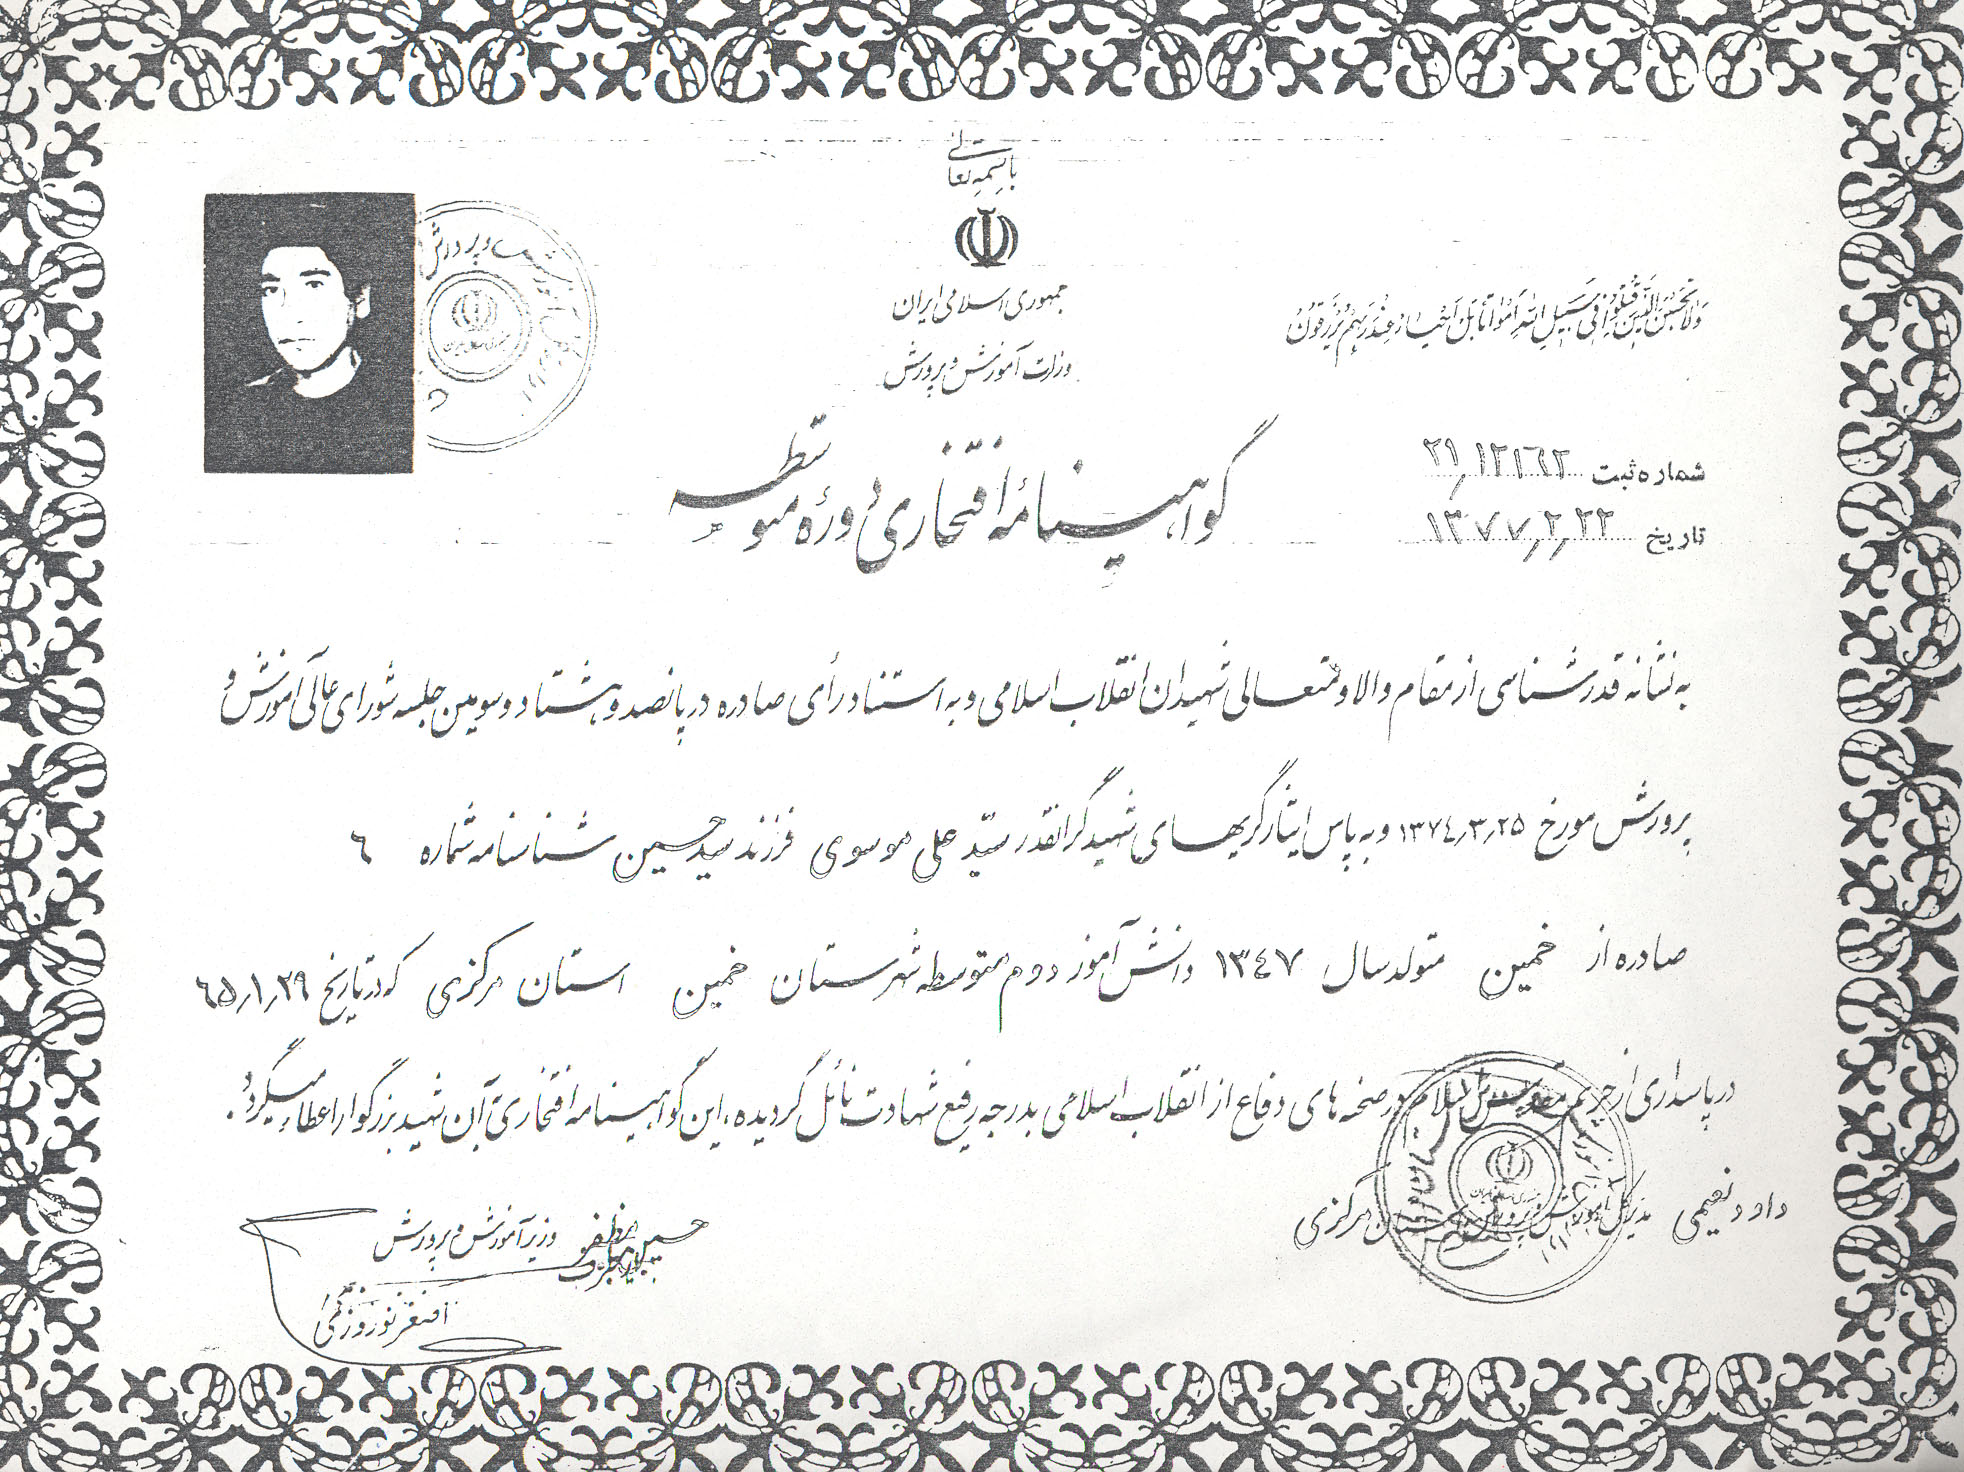 باسمه تعالی
جمهوری اسلامی ایران
وزارت آموزش و پرورش
وَلا تَحْسَبَنَّ الَّذینَ قُتِلُوا فی سَبیلِ اللهِ اَمْواتاً بَلْ اَحْیاءٌ عِنْدَ رَبِّهِمْ یُرْزَقُونَ
شماره ثبت ۲۱٫۱۲۱۶۲
تاریخ ۱۳۷۷٫۲٫۲۲
گواهینامهٔ افتخاری دورهٔ متوسطه
به نشانه قدرشناسی از مقام والا و متعالی شهیدان انقلاب اسلامی و به استناد رأی صادره در پانصد و هشتاد و سومین جلسه شورای عالی آموزش و
پرورش مورخ ۱۳۷٤٫۳٫۲۵ و به پاس ایثارگریهای شهید گرانقدر سیّد علی موسوی فرزند سید حسین شناسنامه شماره ٦
صادره از خمین متولد سال ۱۳٤۷ دانش آموز دوم متوسطه شهرستان خمین استان مرکزی که در تاریخ ٦۵٫۱٫۲۹
در پاسداری از حریم مقدس اسلام در صحنه های دفاع از انقلاب اسلامی بدرجه رفیع شهادت نائل گردیده، این گواهینامه افتخاری به آن شهید بزرگوار اعطاء میگردد.
داود نعیمی مدیرکل آموزش و پرورش استان مرکزی
حسین مظفر وزیر آموزش و پرورش
جمهوری اسلامی ایران